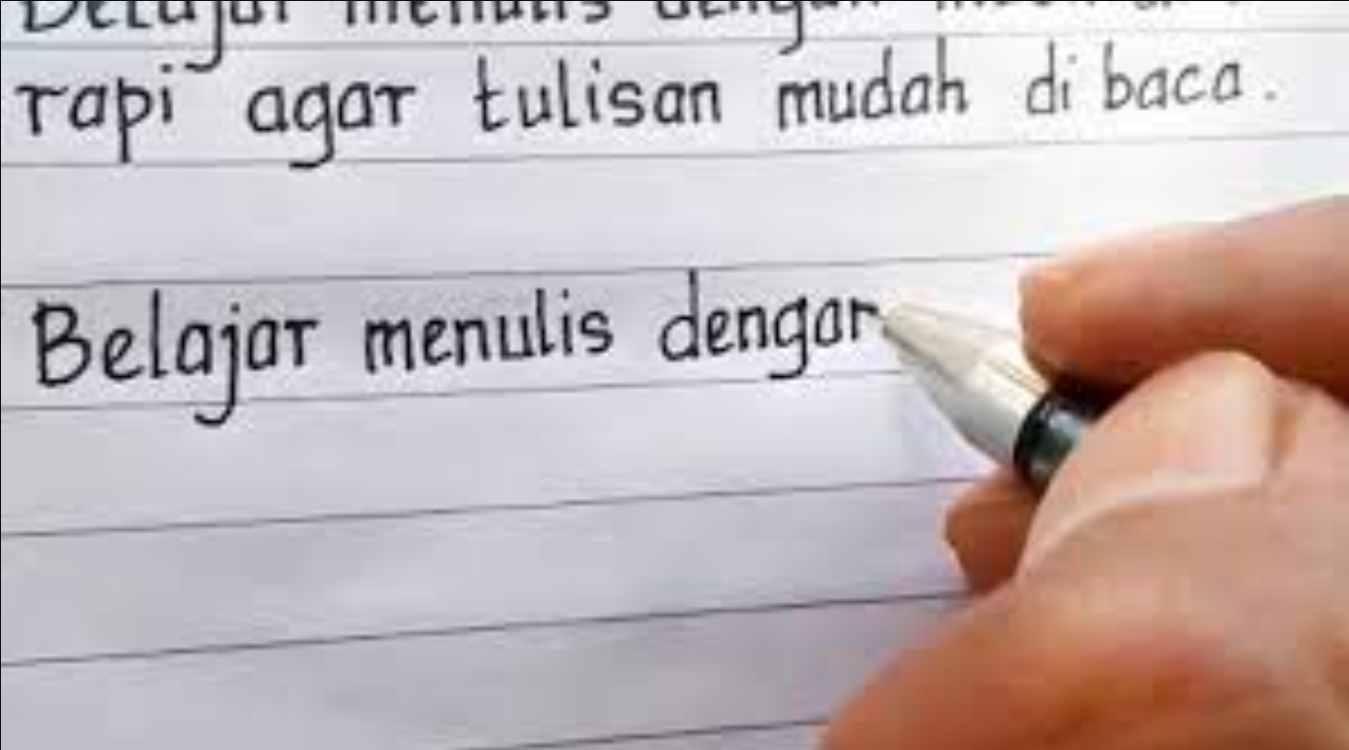 Belajar menulis dengan
rapi agar tulisan mudah di baca.
Belajar menulis dengar